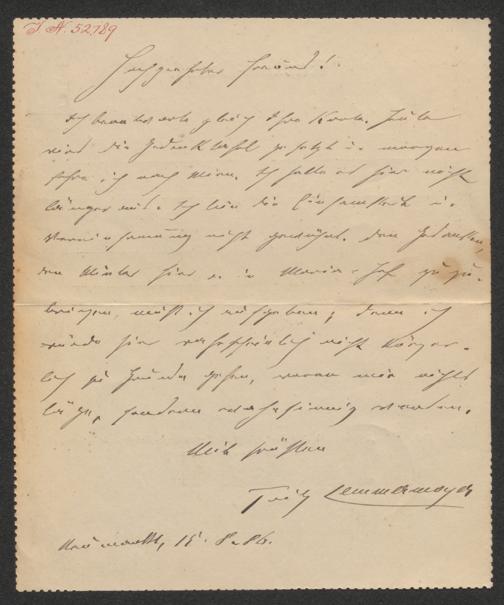 I. N. 52.789
Hochgeehrter Freund!
Ich beantworte gleich Ihre Karte. Heute
wird die Gedenktafel gesetzt u. morgen
fahre ich nach Wien. Ich halte es hier nicht
länger aus. Ich bin die Einsamkeit u.
Vereinsamung nicht gewöhnt. Den Gedanken,
den Winter hier o. in Maria-Hof zuzu-
bringen, muß ich aufgeben; denn ich
würde hier wahrscheinlich nicht körper-
lich zu Grunde gehen, woran mir nichts
läge, sondern wahnsinnig werden.
Mit Grüßen
Fritz Lemmermayer
Neumarkt, 15. 8. 86.